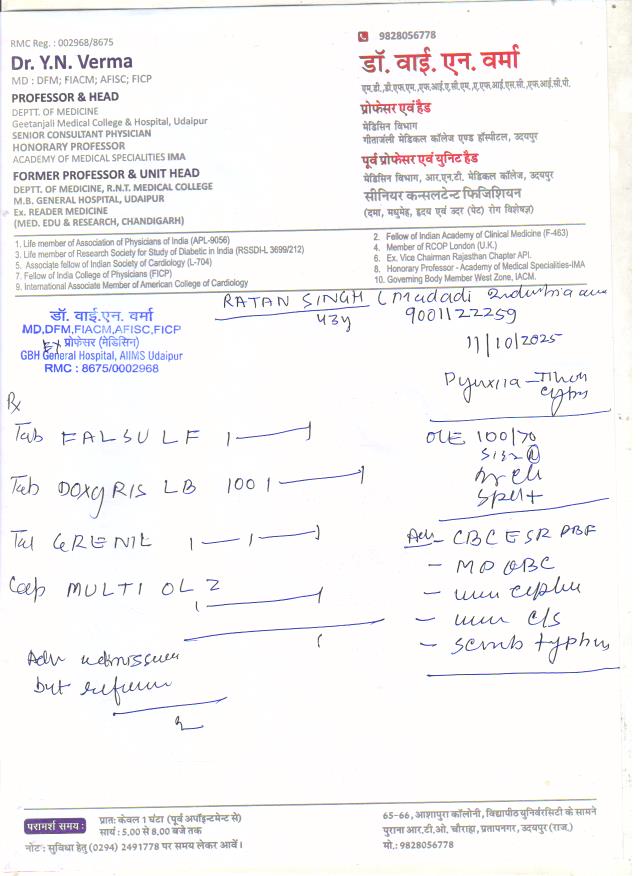 RMC Reg. : 002968/8675
Dr. Y.N. Verma
MD : DFM; FIACM; AFISC; FICP
PROFESSOR & HEAD
DEPTT. OF MEDICINE
Geetanjali Medical College & Hospital, Udaipur
SENIOR CONSULTANT PHYSICIAN
HONORARY PROFESSOR
ACADEMY OF MEDICAL SPECIALITIES IMA
FORMER PROFESSOR & UNIT HEAD
DEPTT. OF MEDICINE, R.N.T. MEDICAL COLLEGE
M.B. GENERAL HOSPITAL, UDAIPUR
Ex. READER MEDICINE
(MED. EDU & RESEARCH, CHANDIGARH)
9828056778
डॉ. वाई. एन. वर्मा
एम.डी.,डी.एफ.एम.,एफ.आई.ए.सी.एम.,ए.एफ.आई.एस.सी.,एफ.आई.सी.पी.
प्रोफेसर एवं हैड
मेडिसिन विभाग
गीतांजली मेडिकल कॉलेज एण्ड हॉस्पीटल, उदयपुर
पूर्व प्रोफेसर एवं युनिट हैड
मेडिसिन विभाग, आर.एन.टी. मेडिकल कॉलेज, उदयपुर
सीनियर कन्सलटेन्ट फिजिशियन
(दमा, मधुमेह, हृदय एवं उदर (पेट) रोग विशेषज्ञ)
1. Life member of Association of Physicians of India (APL-9056)
3. Life member of Research Society for Study of Diabetic in India (RSSDI-L 3699/212)
5. Associate fellow of Indian Society of Cardiology (L-704)
7. Fellow of India College of Physicians (FICP)
9. International Associate Member of American College of Cardiology
2. Fellow of Indian Academy of Clinical Medicine (F-463)
4. Member of RCOP London (U.K.)
6. Ex. Vice Chairman Rajasthan Chapter API.
8. Honorary Professor - Academy of Medical Specialities-IMA
10. Governing Body Member West Zone, IACM.
RATAN SINGH
43y 9001122259
11/10/2025
डॉ. वाई.एन. वर्मा
MD,DFM,FIACM,AFISC,FICP
Ex प्रोफेसर (मेडिसिन)
GBH General Hospital, AIIMS Udaipur
RMC : 8675/0002968
Rx
Tab FALSULF 1 — 1
Tab DOXYRIS LB 100 1 — 1
Tab GRENIL 1 — 1 — 1
Cap MULTI OL 2
1 — 1
Adv admission
but
O/E 100/70
Adv - CBC ESR PBF
- MP QBC
- C/S
- scrub typhus
परामर्श समय :
प्रातः केवल 1 घंटा (पूर्व अपॉइन्टमेन्ट से)
सायं : 5.00 से 8.00 बजे तक
नोट : सुविधा हेतु (0294) 2491778 पर समय लेकर आवें।
65-66, आशापुरा कॉलोनी, विद्यापीठ युनिर्वरसिटी के सामने
पुराना आर.टी.ओ. चौराहा, प्रतापनगर, उदयपुर (राज.)
मो.: 9828056778